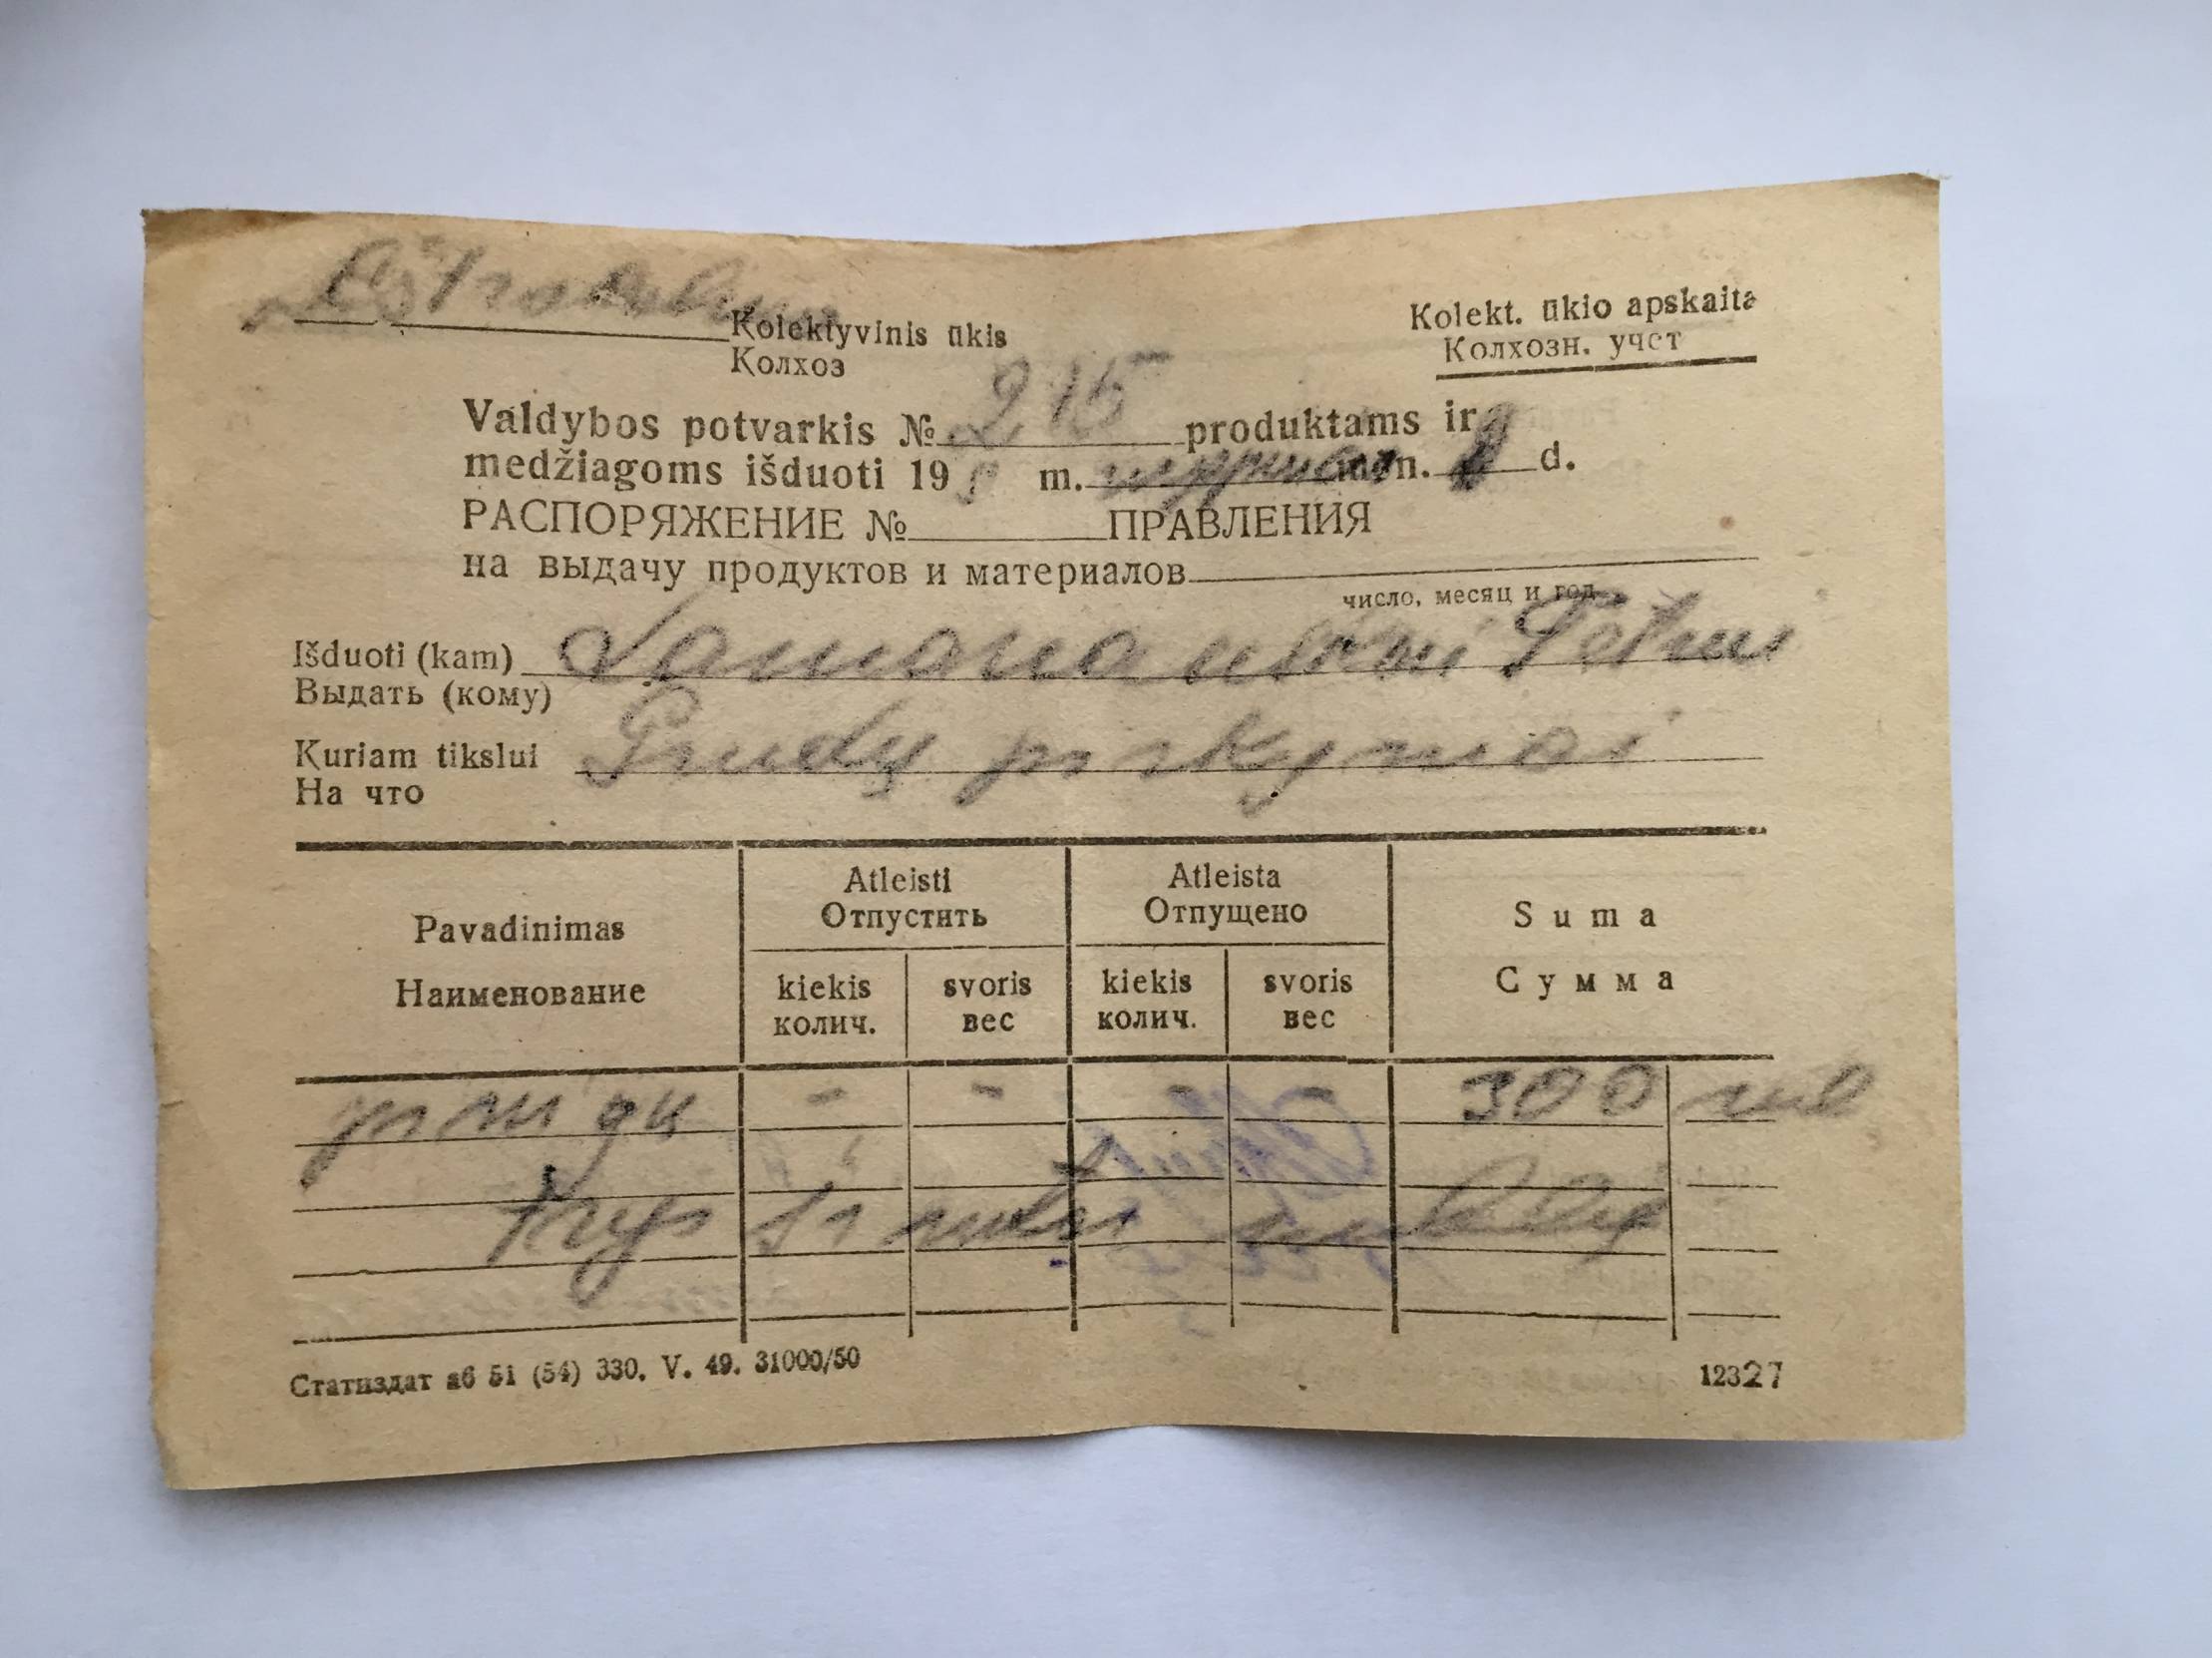 Kolektyvinis ūkis
Колхоз
Kolekt. ūkio apskaita
Колхозн. учет
Valdybos potvarkis № 215 produktams ir
medžiagoms išduoti 195 m. rugpjučio mėn. d.
РАСПОРЯЖЕНИЕ № ПРАВЛЕНИЯ
на выдачу продуктов и материалов
число, месяц и год
Išduoti (kam)
Выдать (кому)
Kuriam tikslui Grudų pirkymai
На что
Pavadinimas
Наименование
Atleisti
Отпустить
Atleista
Отпущено
Suma
Сумма
kiekis svoris kiekis svoris
колич. вес колич. вес
pinigų - - - - 300 rub
trys šimtai rublių
Статиздат аб 51 (54) 330. V. 49. 31000/50
12327